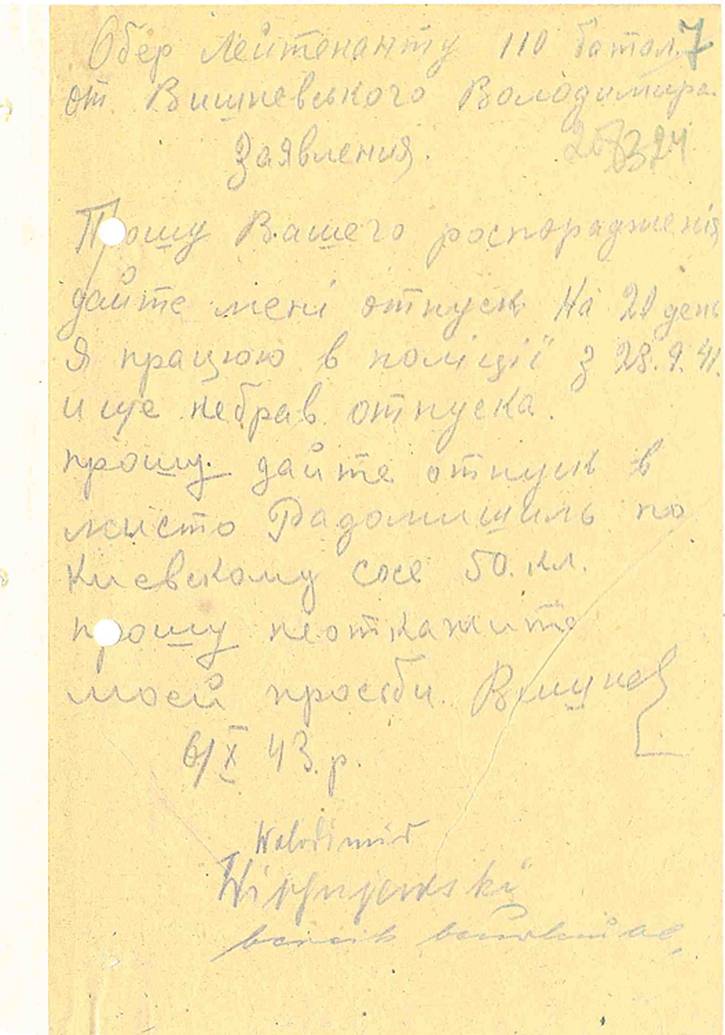 Обер Лейтенанту 110 батал. 7
от Вишневського Володимира
Заявления.
Прошу Вашего роспорадженія
дайте мені отпуск На 20 день
Я працюю в поліції з 28.9.41.
и ще небрав отпуска.
прошу. дайте отпуск в
мисто Радомишиль по
Киевскому сосе 50. кл.
прошу неоткажите
моей прозби. Вишнев
6/X 43. р.
Wolodimir
Wischnjewski